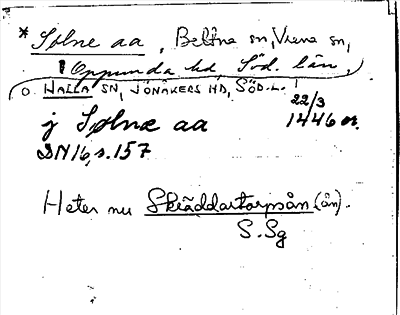 * Sølne aa, Beltna sn, Vrena sn,
Oppunda hd, Söd. län,
o. HALLA SN, JÖNÅKERS HD, SÖD.L.
j Sølnæ aa 22/3 1446 or.
DN 16, s. 157
Heter nu Skräddartorpsån (ån).
S. Sg